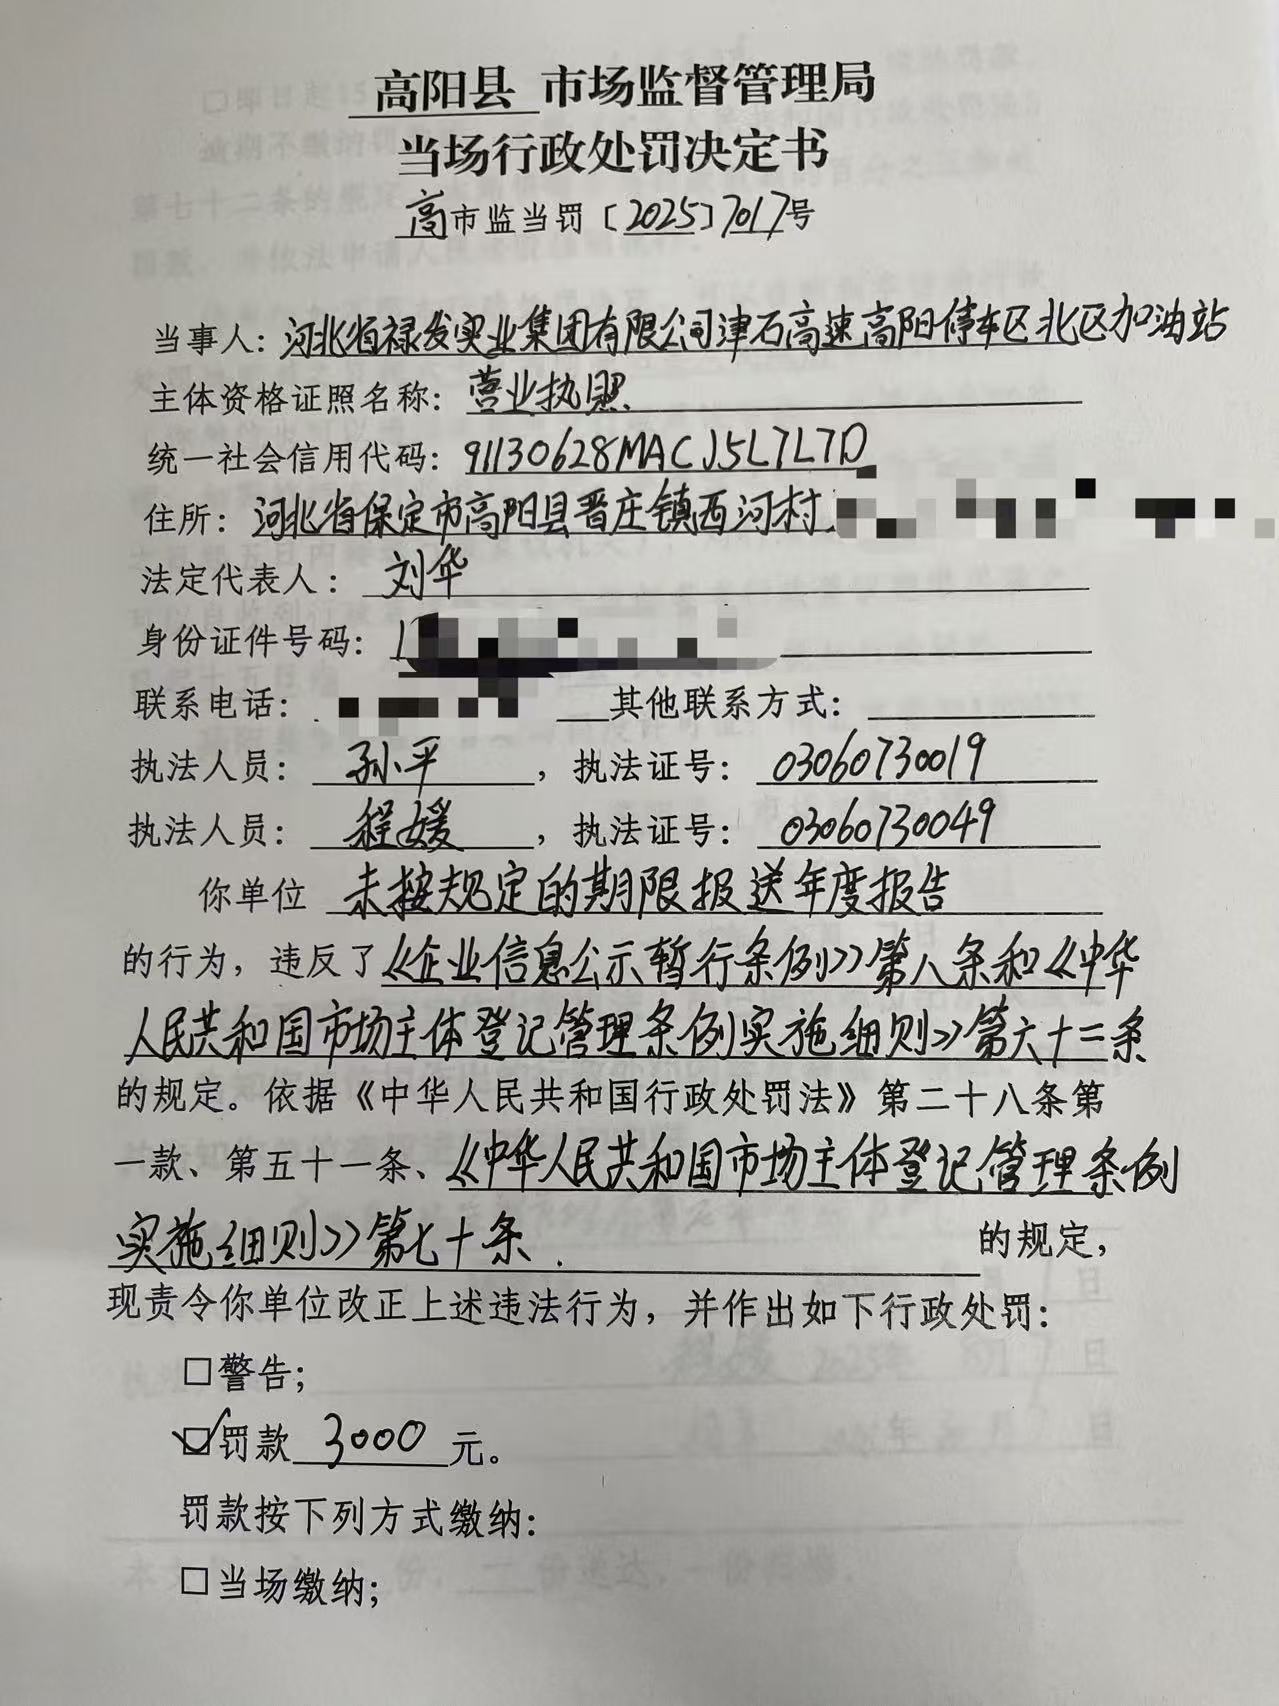 高阳县 市场监督管理局
当场行政处罚决定书
高市监当罚〔2025〕7017号
当事人：河北省禄发实业集团有限公司津石高速高阳停车区北区加油站
主体资格证照名称：营业执照
统一社会信用代码：91130628MACJ5L7L7D
住所：河北省保定市高阳县晋庄镇西河村
法定代表人：刘华
身份证件号码：1
联系电话： 其他联系方式：
执法人员：孙平，执法证号：03060730019
执法人员：程媛，执法证号：03060730049
你单位 未按规定的期限报送年度报告
的行为，违反了《企业信息公示暂行条例》第八条和《中华
人民共和国市场主体登记管理条例实施细则》第六十三条
的规定。依据《中华人民共和国行政处罚法》第二十八条第
一款、第五十一条、《中华人民共和国市场主体登记管理条例
实施细则》第七十条. 的规定，
现责令你单位改正上述违法行为，并作出如下行政处罚：
□警告；
☑罚款 3000 元。
罚款按下列方式缴纳：
□当场缴纳；